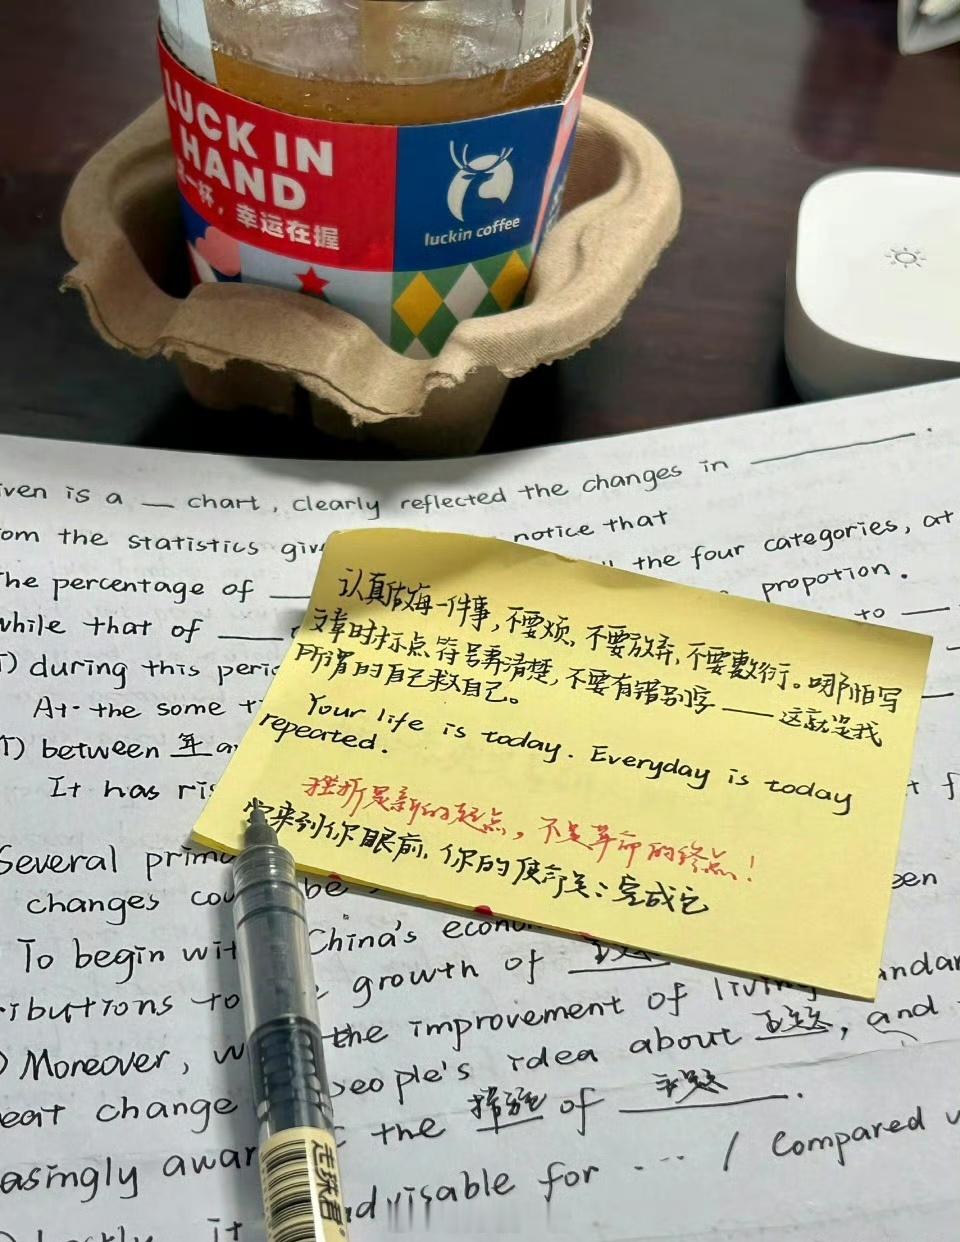 LUCK IN
HAND
一杯，幸运在握
luckin coffee
iven is a __ chart, clearly reflected the changes in ______.
om the statistics giv notice that
the four categories, at
The percentage of ___ propotion.
while that of ___ to ___
T) during this peri
At the some t
T) between 年 a
It has ris
认真做每一件事，不要烦，不要放弃，不要敷衍。哪怕写
文章时标点符号弄清楚，不要有错别字——这就是我
所谓的自己救自己。
Your life is today. Everyday is today
repeated.
挫折是新的起点，不是革命的终点！
当来到你眼前，你的使命是：完成它
Several prim
changes cou be een
To begin wit China's econo
ributions to growth of 主题 andar
) Moreover, w the improvement of living
eat change people's idea about 主题, and
asingly awar the 措施 of 主题.
advisable for ... / Compared w
it
走珠君